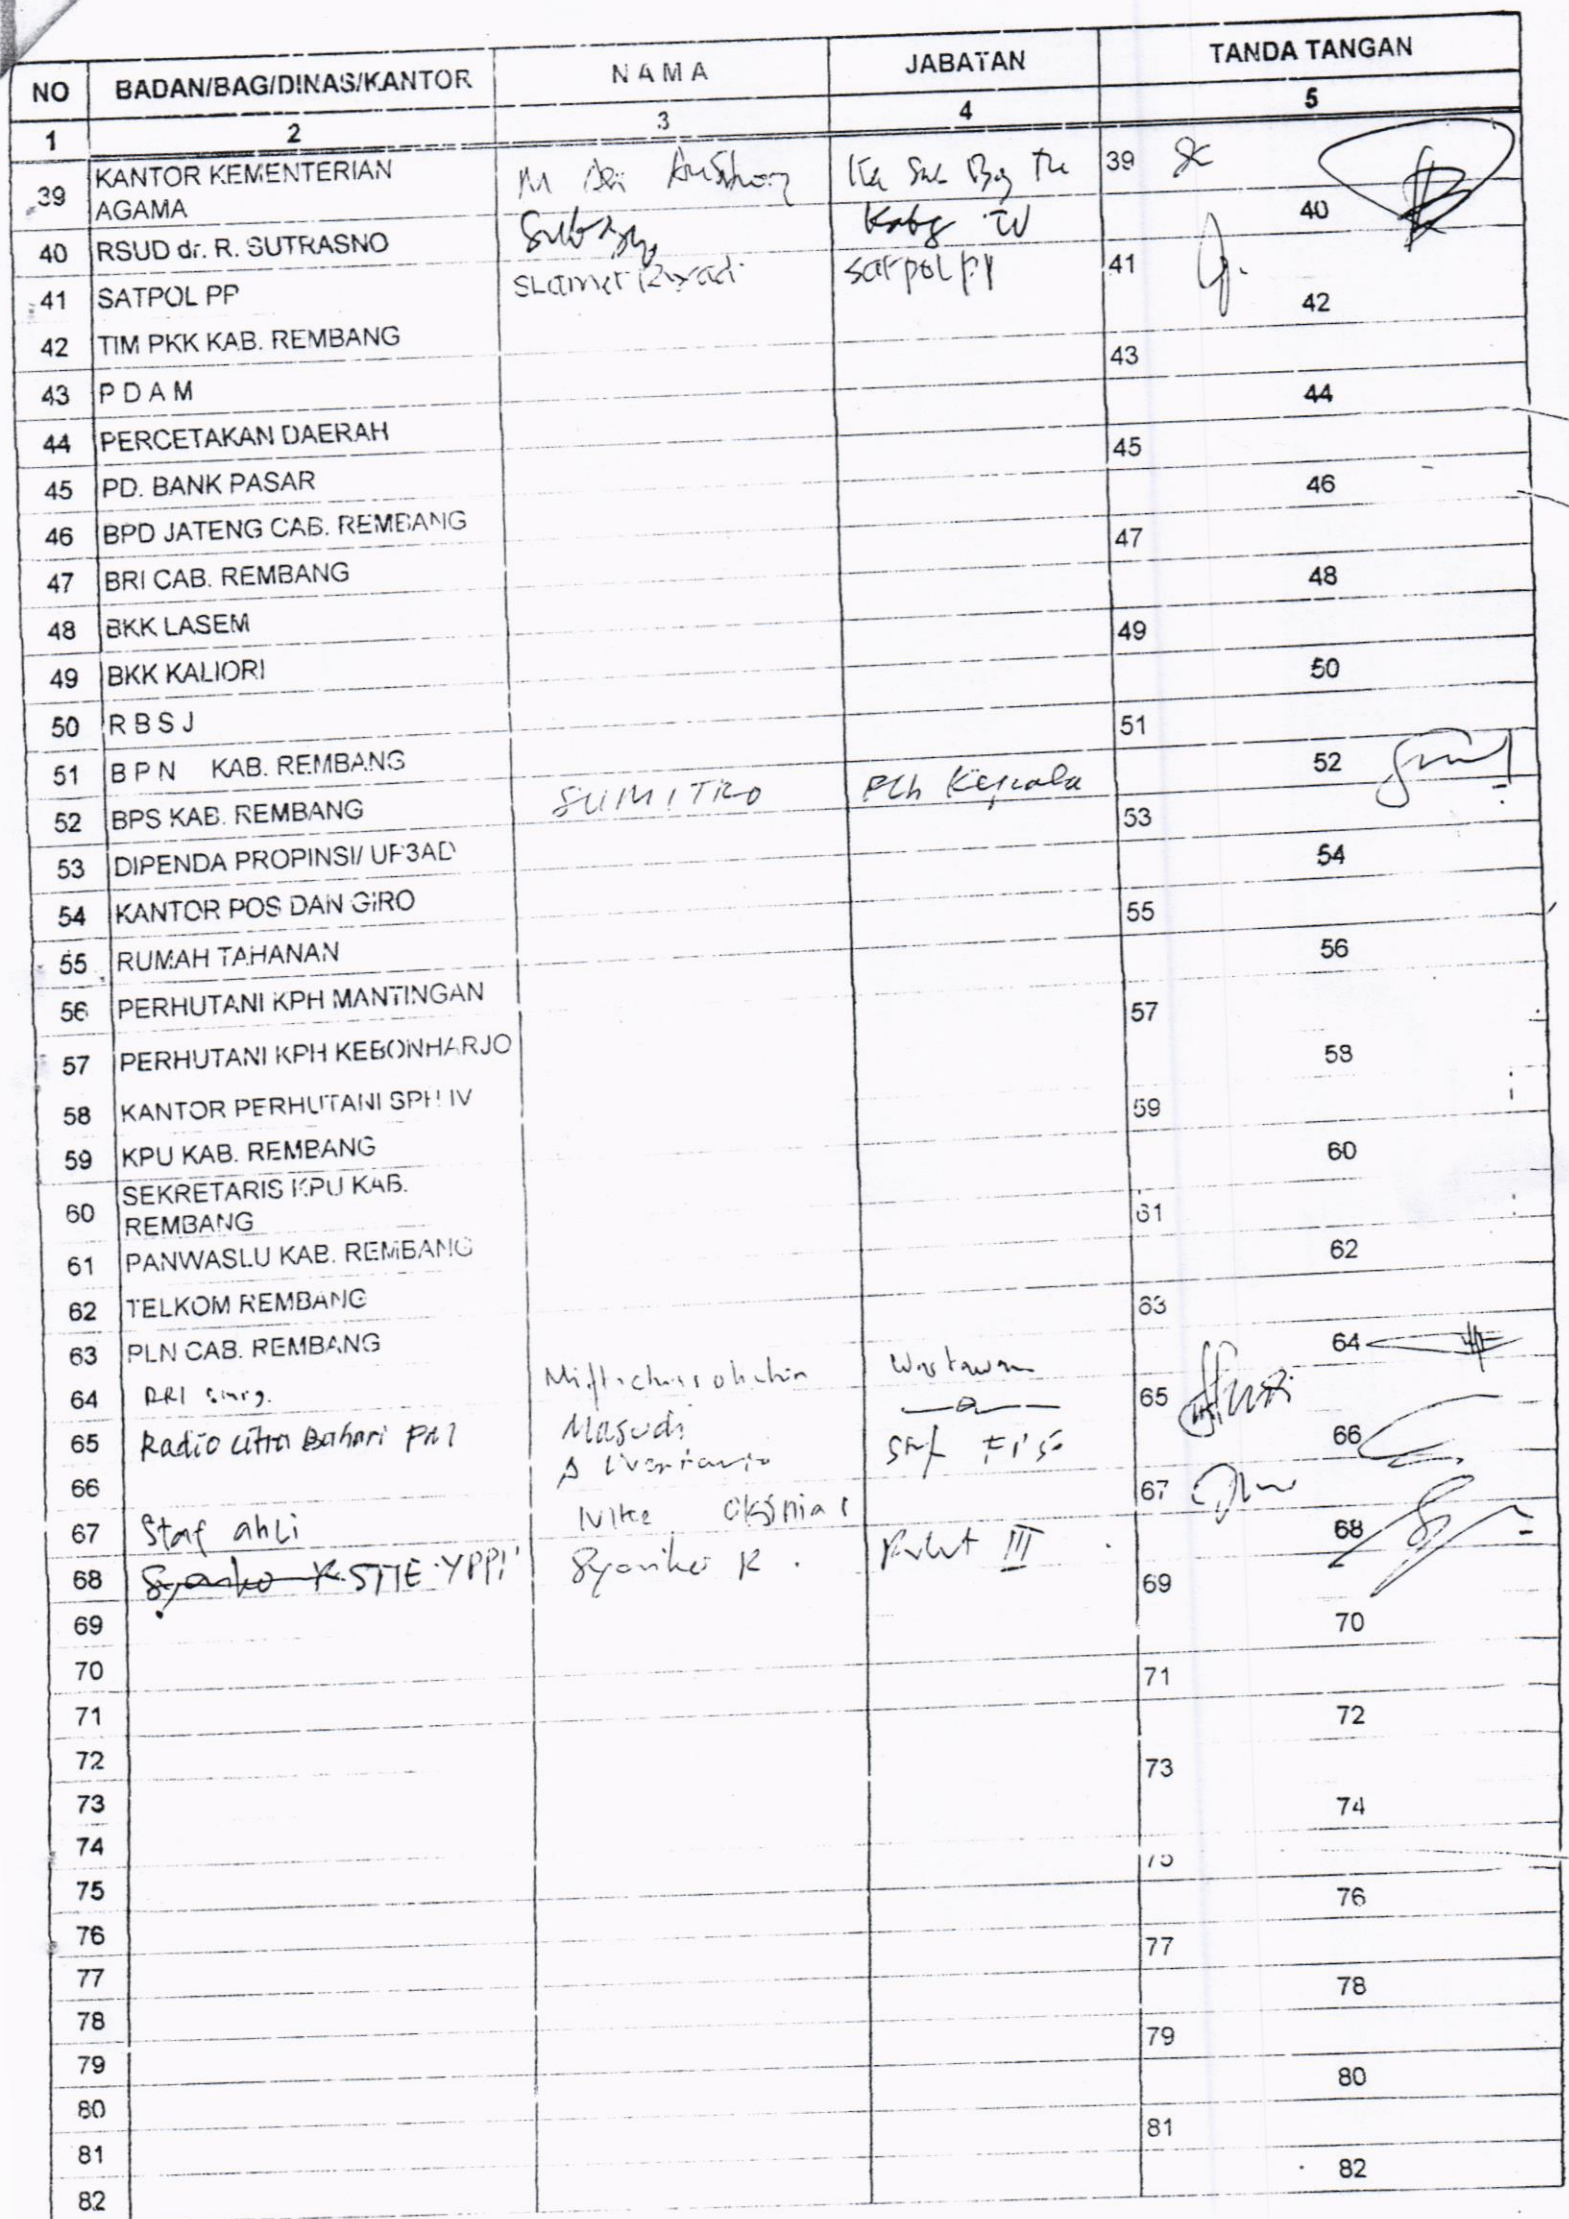 NO BADAN/BAG/DINAS/KANTOR NAMA JABATAN TANDA TANGAN
1 2 3 4 5
39 KANTOR KEMENTERIAN AGAMA M Ka Sub Bag Tu 39
40 RSUD dr. R. SUTRASNO 40
41 SATPOL PP Slamet Riyadi Satpol PP 41
42 TIM PKK KAB. REMBANG 42
43 P D A M 43
44 PERCETAKAN DAERAH 44
45 PD. BANK PASAR 45
46 BPD JATENG CAB. REMBANG 46
47 BRI CAB. REMBANG 47
48 BKK LASEM 48
49 BKK KALIORI 49
50 R B S J 50
51 B P N KAB. REMBANG 51
52 BPS KAB. REMBANG SUMITRO Plh Kepala 52
53 DIPENDA PROPINSI/ UP3AD 53
54 KANTOR POS DAN GIRO 54
55 RUMAH TAHANAN 55
56 PERHUTANI KPH MANTINGAN 56
57 PERHUTANI KPH KEBONHARJO 57
58 KANTOR PERHUTANI SPH IV 58
59 KPU KAB. REMBANG 59
60 SEKRETARIS KPU KAB. REMBANG 60
61 PANWASLU KAB. REMBANG 61
62 TELKOM REMBANG 62
63 PLN CAB. REMBANG 63
64 RRI Wartawan 64
65 Radio Citra Bahari Masudi 65
66 66
67 Staf ahli 67
68 STIE YPPI Syariko R. III 68
69 69
70 70
71 71
72 72
73 73
74 74
75 75
76 76
77 77
78 78
79 79
80 80
81 81
82 82